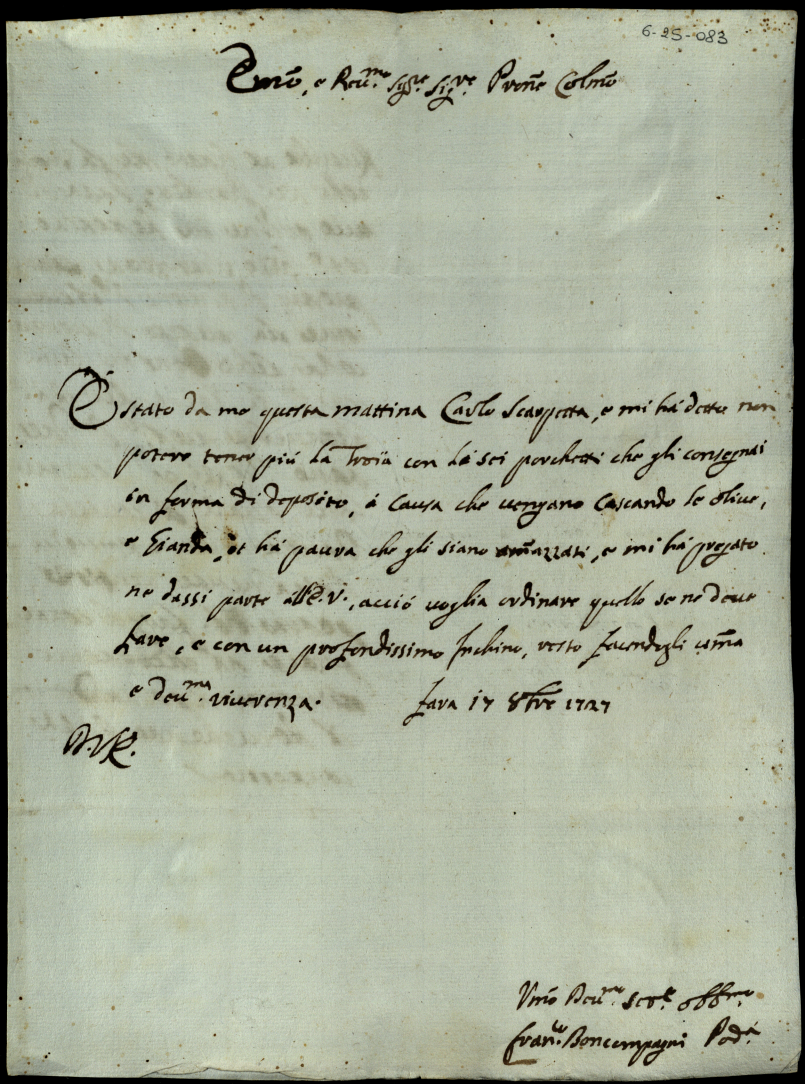 6-25-083
Emo, e Reu.mo Sig.re Sig.re Prone Colmo
È stato da me questa mattina Carlo Scarpetta, e mi hà detto non
potere tener più la Troia con li sei porchetti che gli consegnai
in forma di deposito, à causa che vengano cascando le olive,
e Gianda, et hà paura che gli siano amazzati, e mi hà pregato
ne dassi parte all'E.V., acciò voglia ordinare quello se ne deve
fare, e con un profondissimo Inchino, resto facendogli uma
e deu.ma riverenza. Fara 17 8bre 1727
D.V.E.
Umo Deu.mo Ser.e obb.mo
Fran.co Boncompagni Pod.à